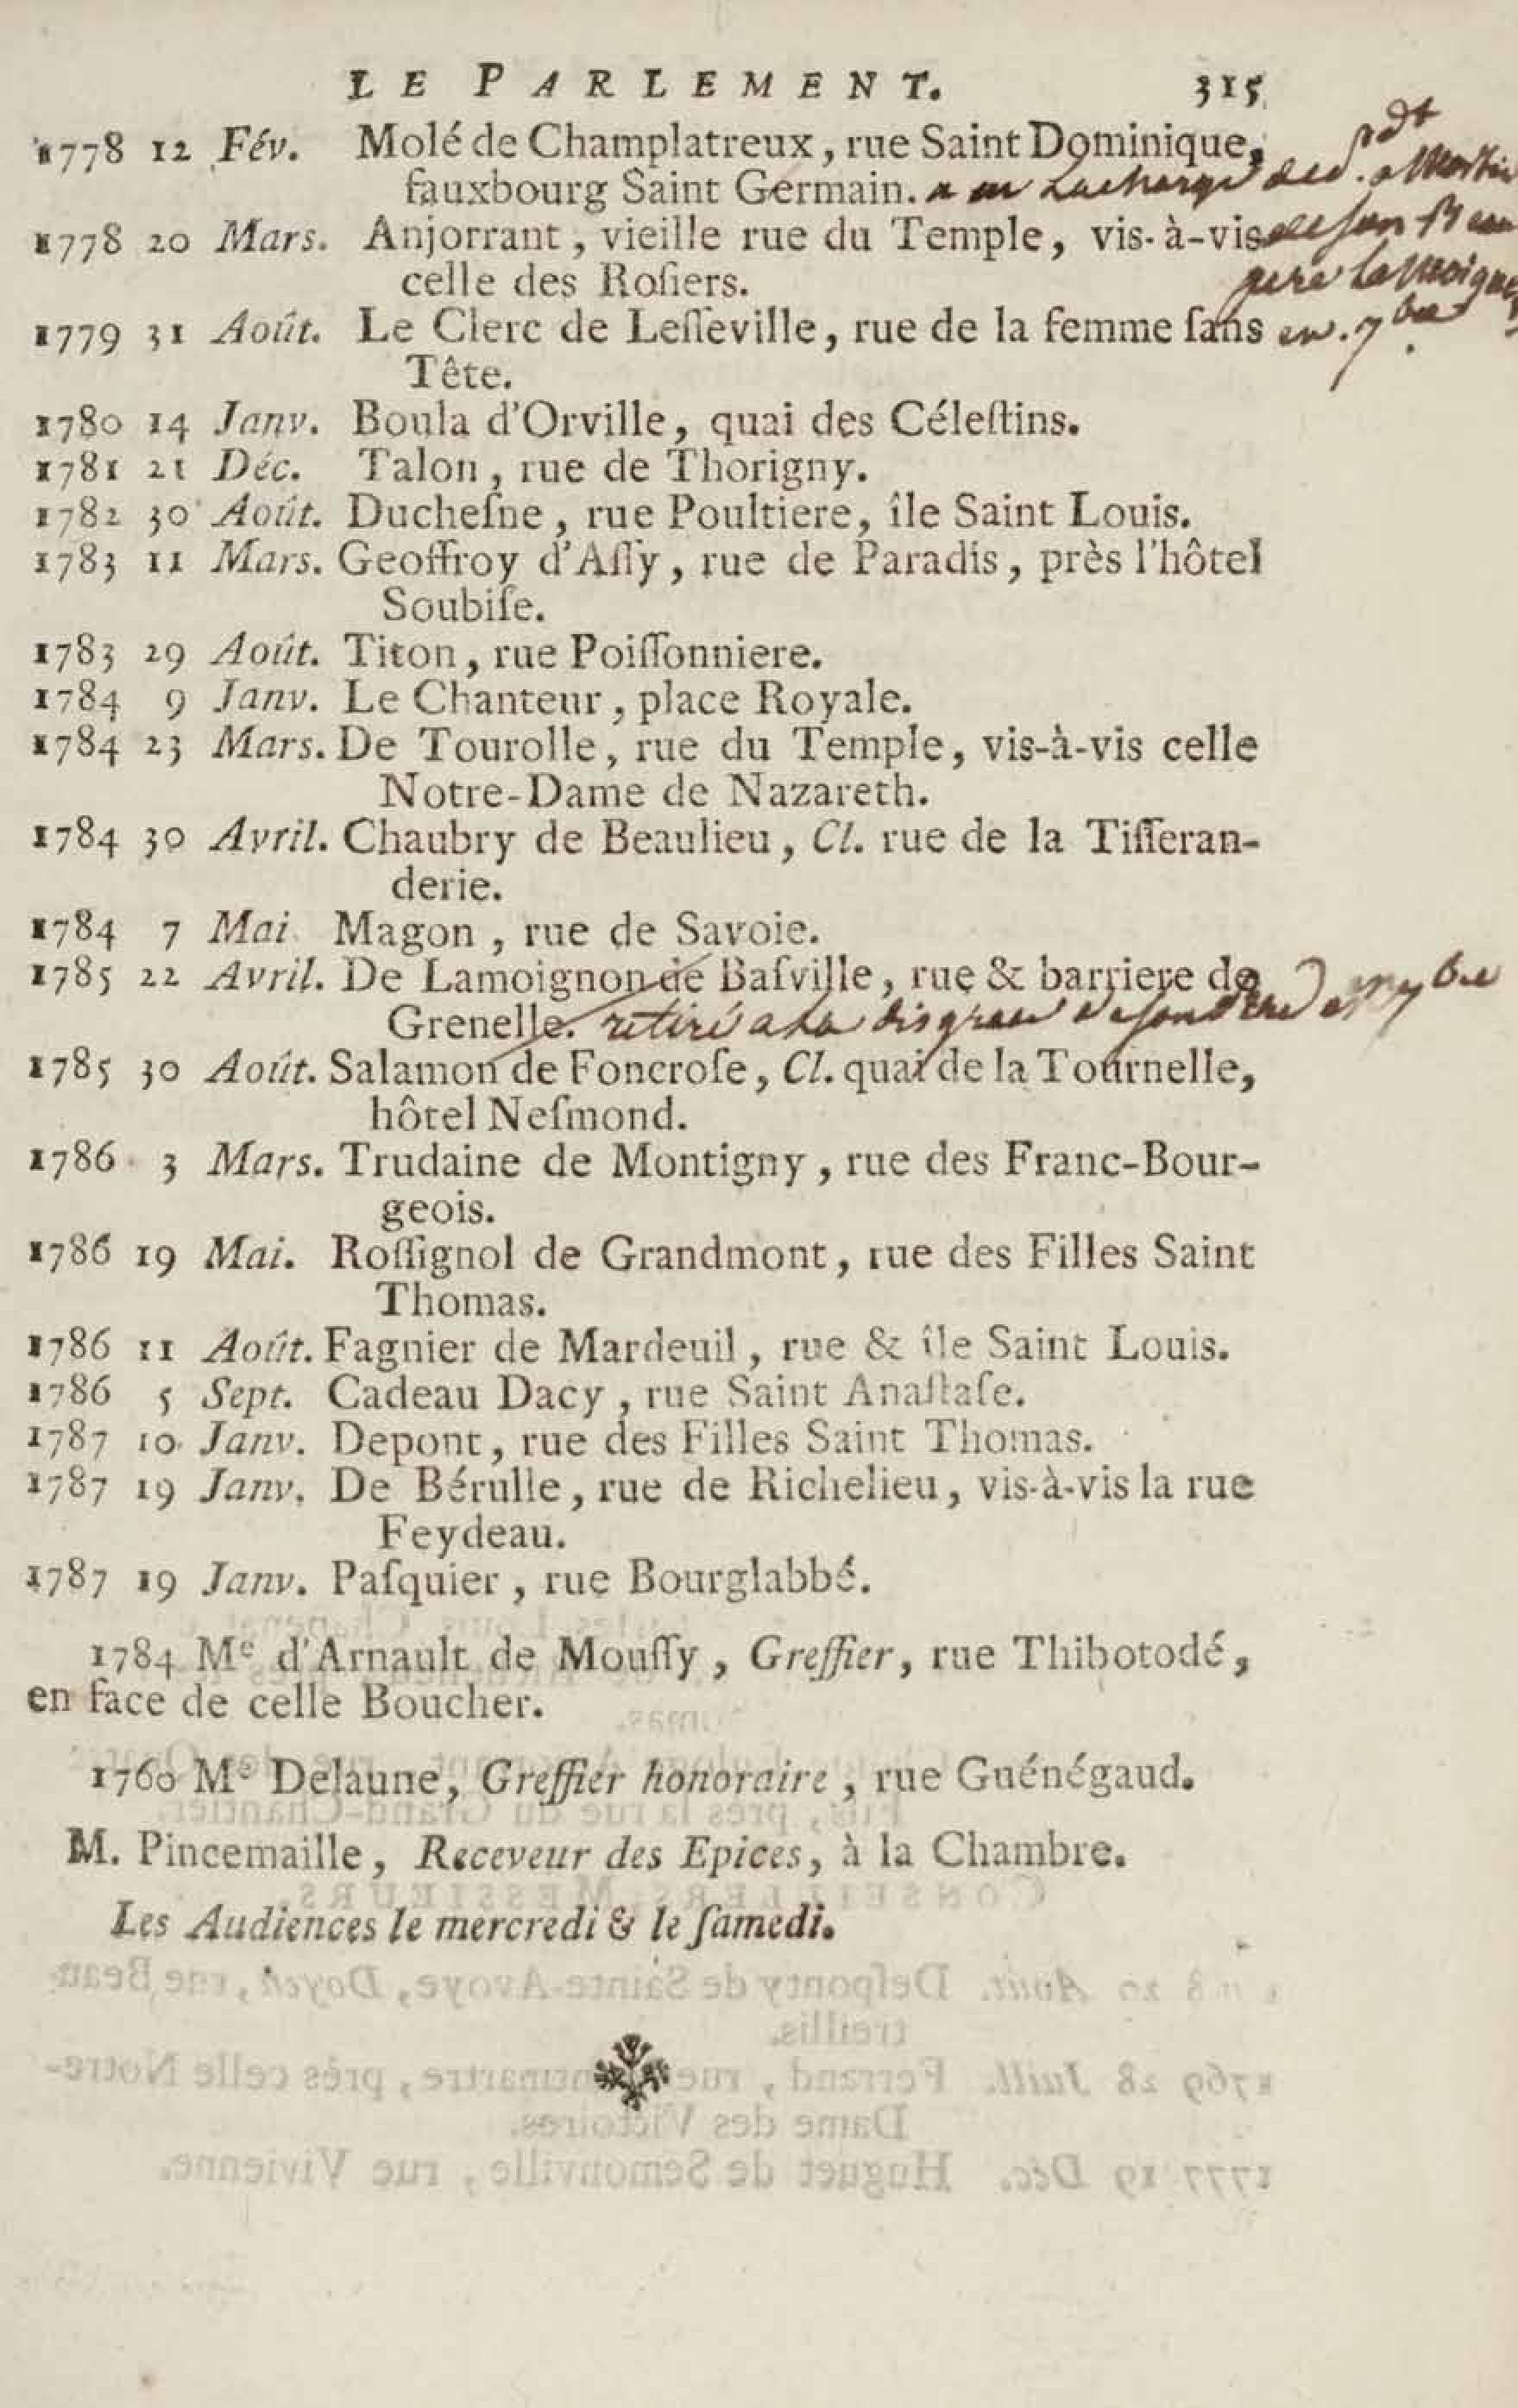 LE PARLEMENT. 315
1778 12 Fév. Molé de Champlatreux, rue Saint Dominique,
fauxbourg Saint Germain. a eu la charge de pdt a Mortier
1778 20 Mars. Anjorrant, vieille rue du Temple, vis-à-vis de son beau
celle des Roſiers. pere Lamoignon
1779 31 Août. Le Clerc de Leſſeville, rue de la femme ſans en 7bre
Tête.
1780 14 Janv. Boula d'Orville, quai des Céleſtins.
1781 21 Déc. Talon, rue de Thorigny.
1782 30 Août. Ducheſne, rue Poultiere, île Saint Louis.
1783 11 Mars. Geoffroy d'Aſſy, rue de Paradis, près l'hôtel
Soubiſe.
1783 29 Août. Titon, rue Poiſſonniere.
1784 9 Janv. Le Chanteur, place Royale.
1784 23 Mars. De Tourolle, rue du Temple, vis-à-vis celle
Notre-Dame de Nazareth.
1784 30 Avril. Chaubry de Beaulieu, Cl. rue de la Tiſſeran-
derie.
1784 7 Mai Magon, rue de Savoie.
1785 22 Avril. De Lamoignon de Baſville, rue & barriere de
Grenelle. retiré a la disgrace de son Pere en 7bre
1785 30 Août. Salamon de Foncroſe, Cl. quai de la Tournelle,
hôtel Neſmond.
1786 3 Mars. Trudaine de Montigny, rue des Franc-Bour-
geois.
1786 19 Mai. Roſſignol de Grandmont, rue des Filles Saint
Thomas.
1786 11 Août. Fagnier de Mardeuil, rue & île Saint Louis.
1786 5 Sept. Cadeau Dacy, rue Saint Anaſtaſe.
1787 10 Janv. Depont, rue des Filles Saint Thomas.
1787 19 Janv. De Bérulle, rue de Richelieu, vis-à-vis la rue
Feydeau.
1787 19 Janv. Paſquier, rue Bourglabbé.
1784 Me d'Arnault de Mouſſy, Greffier, rue Thibotodé,
en face de celle Boucher.
1760 Me Delaune, Greffier honoraire, rue Guénégaud.
M. Pincemaille, Receveur des Epices, à la Chambre.
Les Audiences le mercredi & le ſamedi.